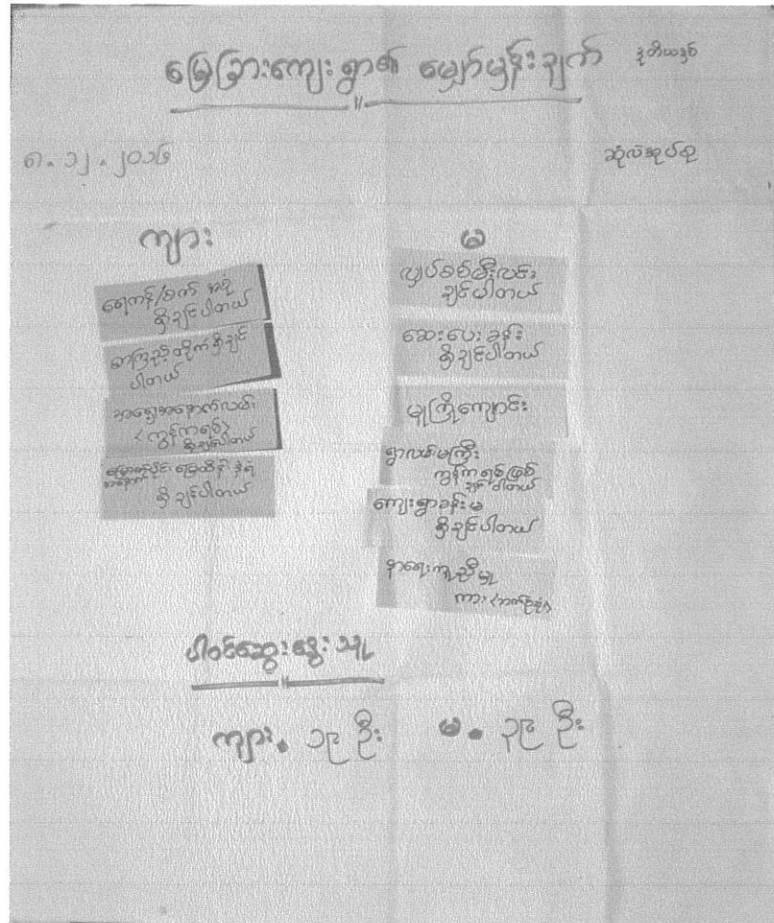 မြေခြားကျေးရွာ၏ မျှော်မှန်းချက် ဒုတိယနှစ်
၈.၁၂.၂၀၁၆
ဆုံလဲအုပ်စု
ကျား
ရေကန်/စက် အစုံ
ရှိချင်ပါတယ်
စာကြည့်တိုက်ရှိချင်
ပါတယ်
အရှေ့အနောက်လမ်း
(ကွန်ကရစ်)
ရှိချင်ပါတယ်
မြေထိန်းနံရံ
ရှိချင်ပါတယ်
မ
လျှပ်စစ်မီးလင်း
ချင်ပါတယ်
ဆေးပေးခန်း
ရှိချင်ပါတယ်
မူကြိုကျောင်း
ရွာလမ်းမကြီး
ကွန်ကရစ်ဖြစ်
ချင်ပါတယ်
ကျေးရွာခန်းမ
ရှိချင်ပါတယ်
နာရေးကူညီမှု
ကား
ပါဝင်ဆွေးနွေးသူ
ကျား. ၁၉ ဦး
မ. ၃၉ ဦး